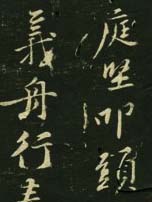 庭坚叩頭
義舟行